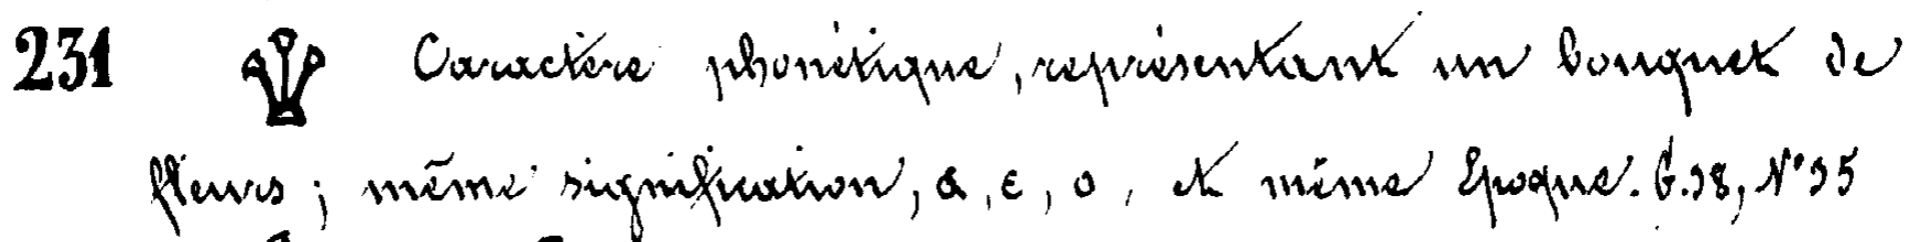 231 Caractère phonétique, représentant un bouquet de
fleurs; même signification, a, e, o, et même Epoque. G.38, N° 35